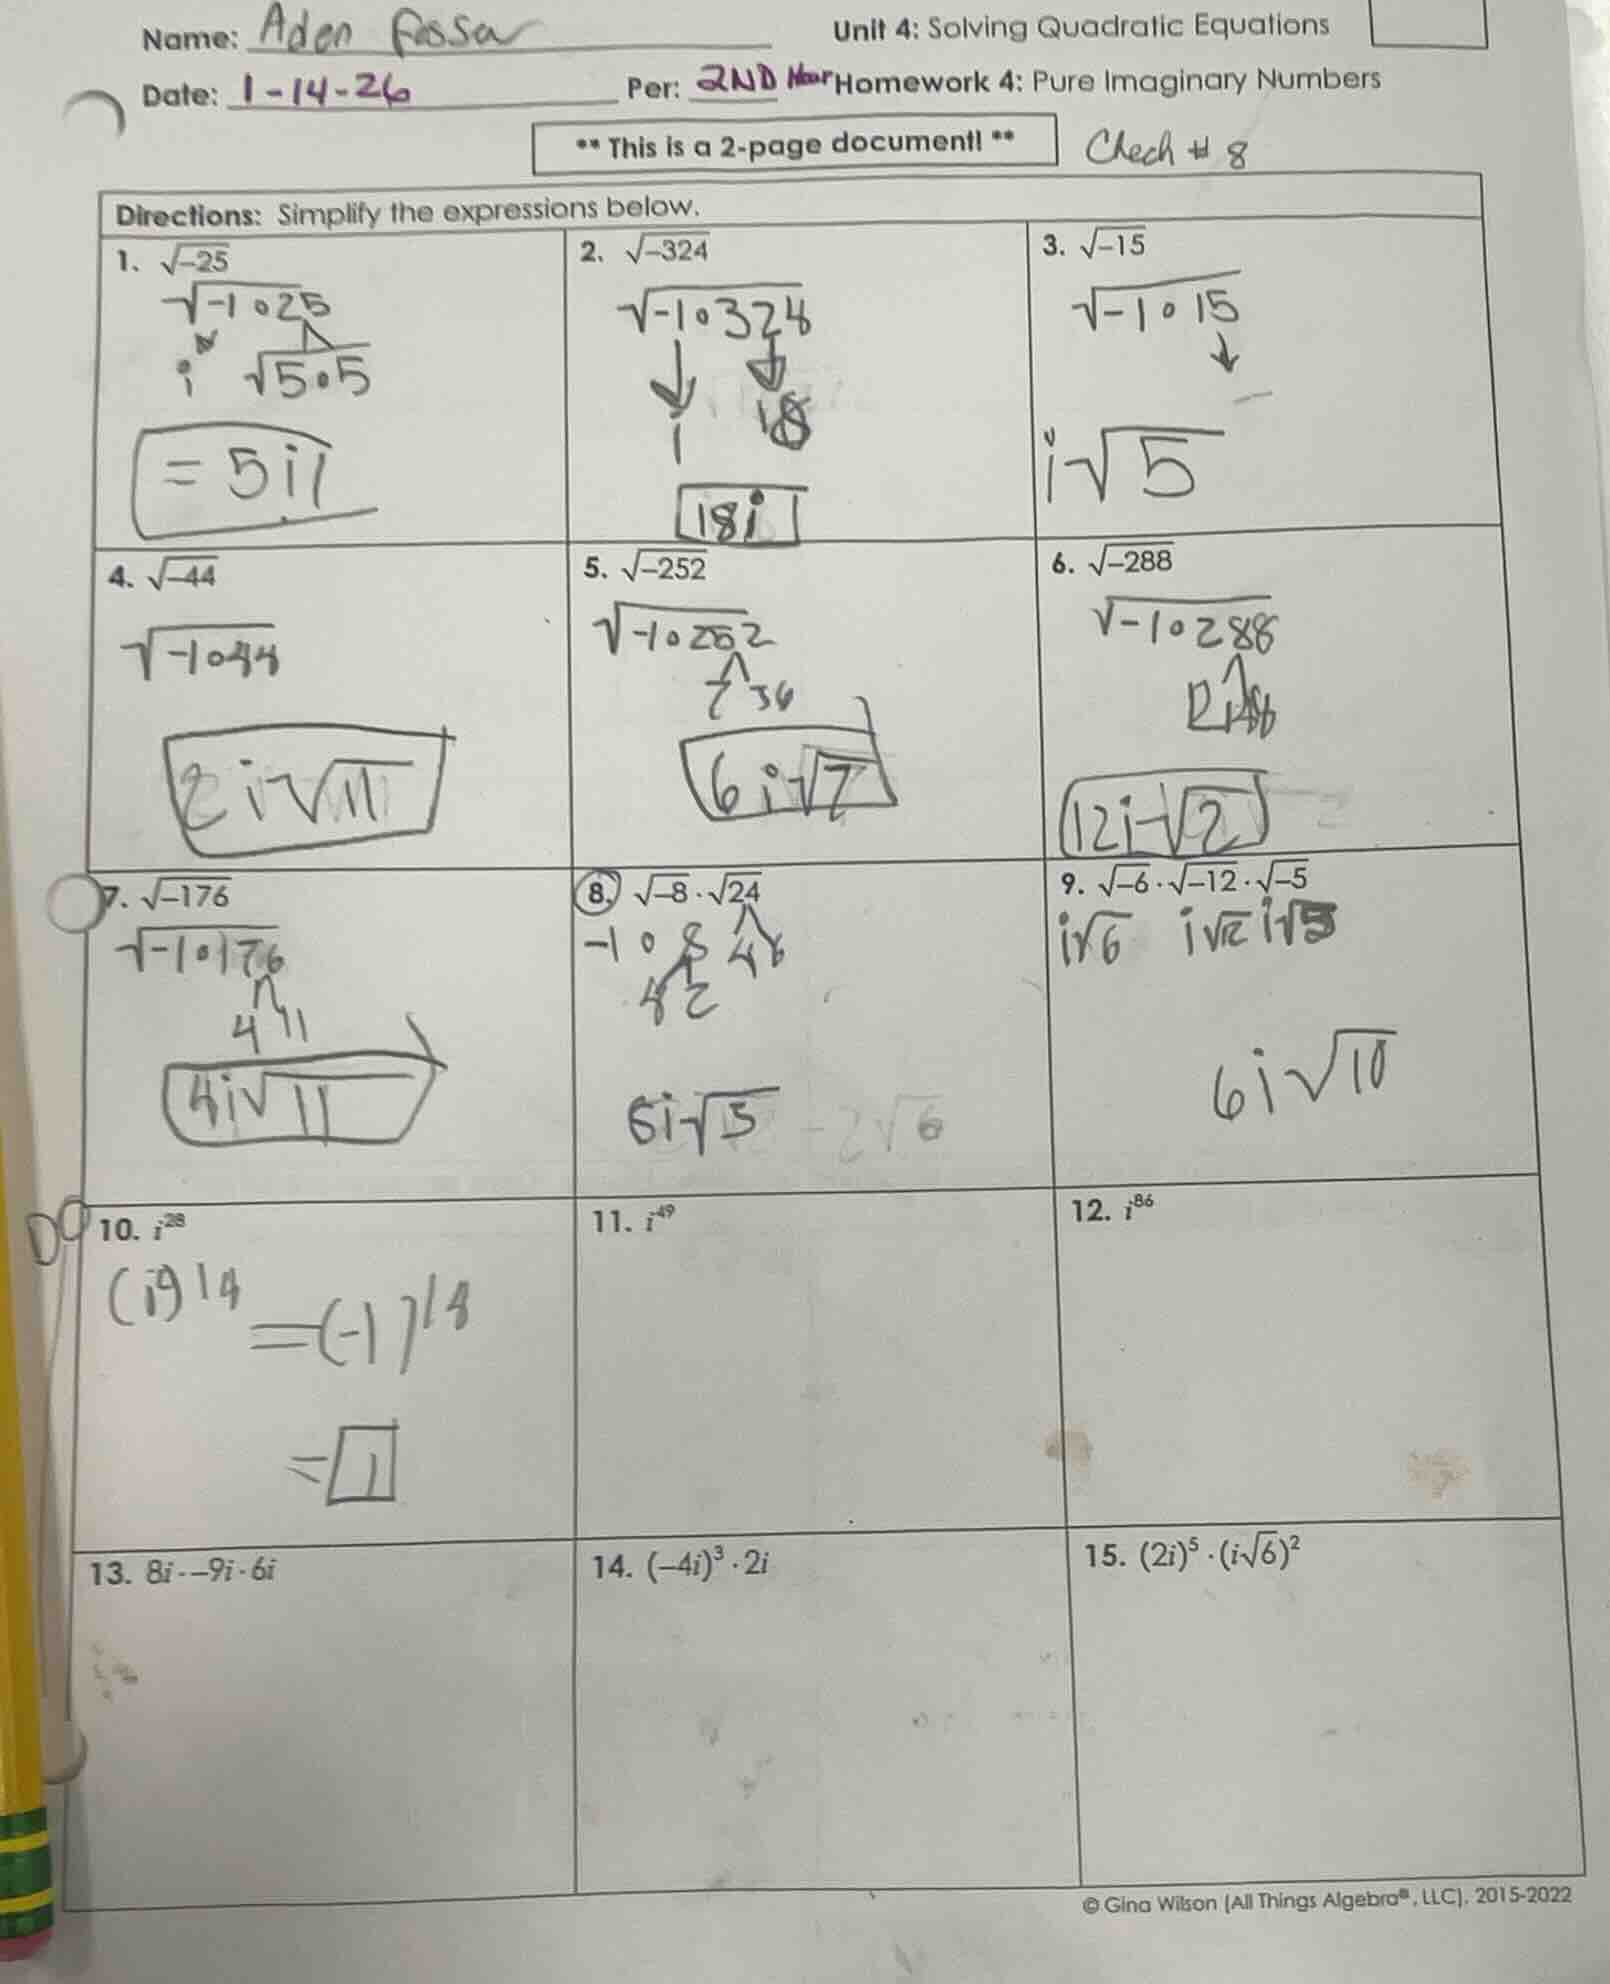 Name: Aden
Unit 4: Solving Quadratic Equations
Date: 1-14-26
Per: 2ND Hour
Homework 4: Pure Imaginary Numbers
** This is a 2-page document! **
Chech # 8
Directions: Simplify the expressions below.
1. √-25
√-1∘25
i √5∘5
= 5i
2. √-324
√-1∘324
i 18
18i
3. √-15
√-1∘15
i√5
4. √-44
√-1∘44
2i√11
5. √-252
√-1∘252
7 36
6i√7
6. √-288
√-1∘288
12i√2
7. √-176
√-1∘176
4 11
4i√11
8. √-8 · √24
-1 ∘ 8 4 6
4 2
-2√6
9. √-6 · √-12 · √-5
i√6 i√12 i√5
6i√10
10. i²⁸
= (-1)¹⁴
= 1
11. i⁴⁹
12. i⁸⁶
13. 8i · -9i · 6i
14. (-4i)³ · 2i
15. (2i)⁵ · (i√6)²
© Gina Wilson (All Things Algebra®, LLC), 2015-2022